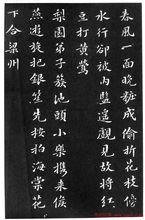 春風一面曉粧成偷折花枝傍
水行卻被內監遙覷見故將紅
豆打黃鶯
梨園弟子簇池頭小樂攜來候
燕遊旋把銀笙先按拍海棠花
下合梁州